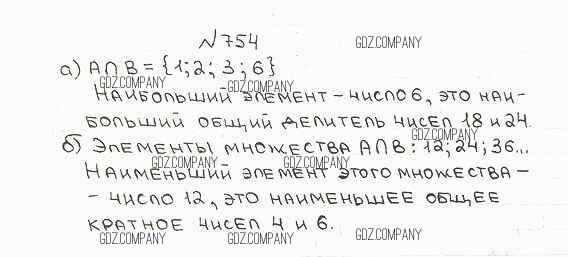 №754
GDZ.COMPANY
а) A∩B = {1; 2; 3; 6}
GDZ.COMPANY GDZ.COMPANY
Наибольший элемент – число 6, это наи-
больший общий делитель чисел 18 и 24.
GDZ.COMPANY
б) Элементы множества A∩B: 12; 24; 36...
GDZ.COMPANY GDZ.COMPANY
Наименьший элемент этого множества –
– число 12, это наименьшее общее
кратное чисел 4 и 6.
GDZ.COMPANY GDZ.COMPANY GDZ.COMPANY